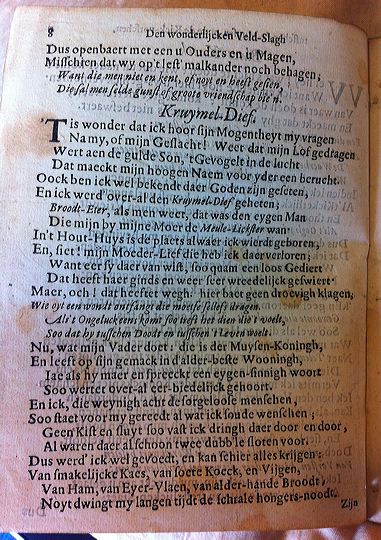 8 Den wonderlijcken Veld-Slagh
Dus openbaert met een u Ouders en u Magen,
Misschien dat wy op't lest malkander noch behagen;
Want die men niet en kent, of noyt en heeft gesien,
Die sal men selde gunst of groote vriendschap bien.
Kruymel-Dief.
'T is wonder dat ick hoor sijn Mogentheyt my vragen
Na my, of mijn Geslacht! Weer dat mijn Lof gedragen
Wert aen de gulde Son, 't Gevogelt in de lucht
Dat maeckt mijn hoogen Naem voor yder een berucht.
Oock ben ick wel bekendt daer Goden zijn geseten,
En ick werd' over-al den Kruymel-Dief geheten;
Broodt-Eter, als men weet, dat was den eygen Man
Die mijn by mijne Moer de Meule-Lickster wan.
In't Hout-Huys is de plaets alwaer ick wierdt geboren;
En, siet! mijn Moeder-Lief die heb ick daer verloren;
Want eer sy daer van wist, soo quam een loos Gediert
Dat heeft haer ginds en weer seer wreedelick geswiert.
Maer, och! dat heeft et wegh, hier baet geen droevigh klagen,
Wie oyt een wondt ontfangt die moetse selefs dragen.
Als't Ongeluck eens komt soo treft het dien 't valt,
Soo dat hy tusschen Doodt en tusschen 't Leven
Nu, wat mijn Vader doet: die is der Muysen-Koningh,
En leeft op sijn gemack in d'alder-beste Wooningh,
Iae als hy maer en spreeckt een eygen-sinnigh woort
Soo wertet over-al eer-biedelijck gehoort.
En ick, die weynigh acht de sorgeloose menschen,
Soo staet voor my gereedt al wat ick soude wenschen;
Geen Kist en sluyt soo vast ick dringh daer door en door,
Al waren daer al schoon twee dubb'le sloten voor.
Dus werd' ick wel gevoedt, en kan schier alles krijgen:
Van smakelijcke Kaes, van soete Koeck, en Vijgen,
Van Ham, van Eyer-Vlaen, van alder-hande Broodt,
Noyt dwingt my langen tijdt de schrale hongers-noodt.
Zijn